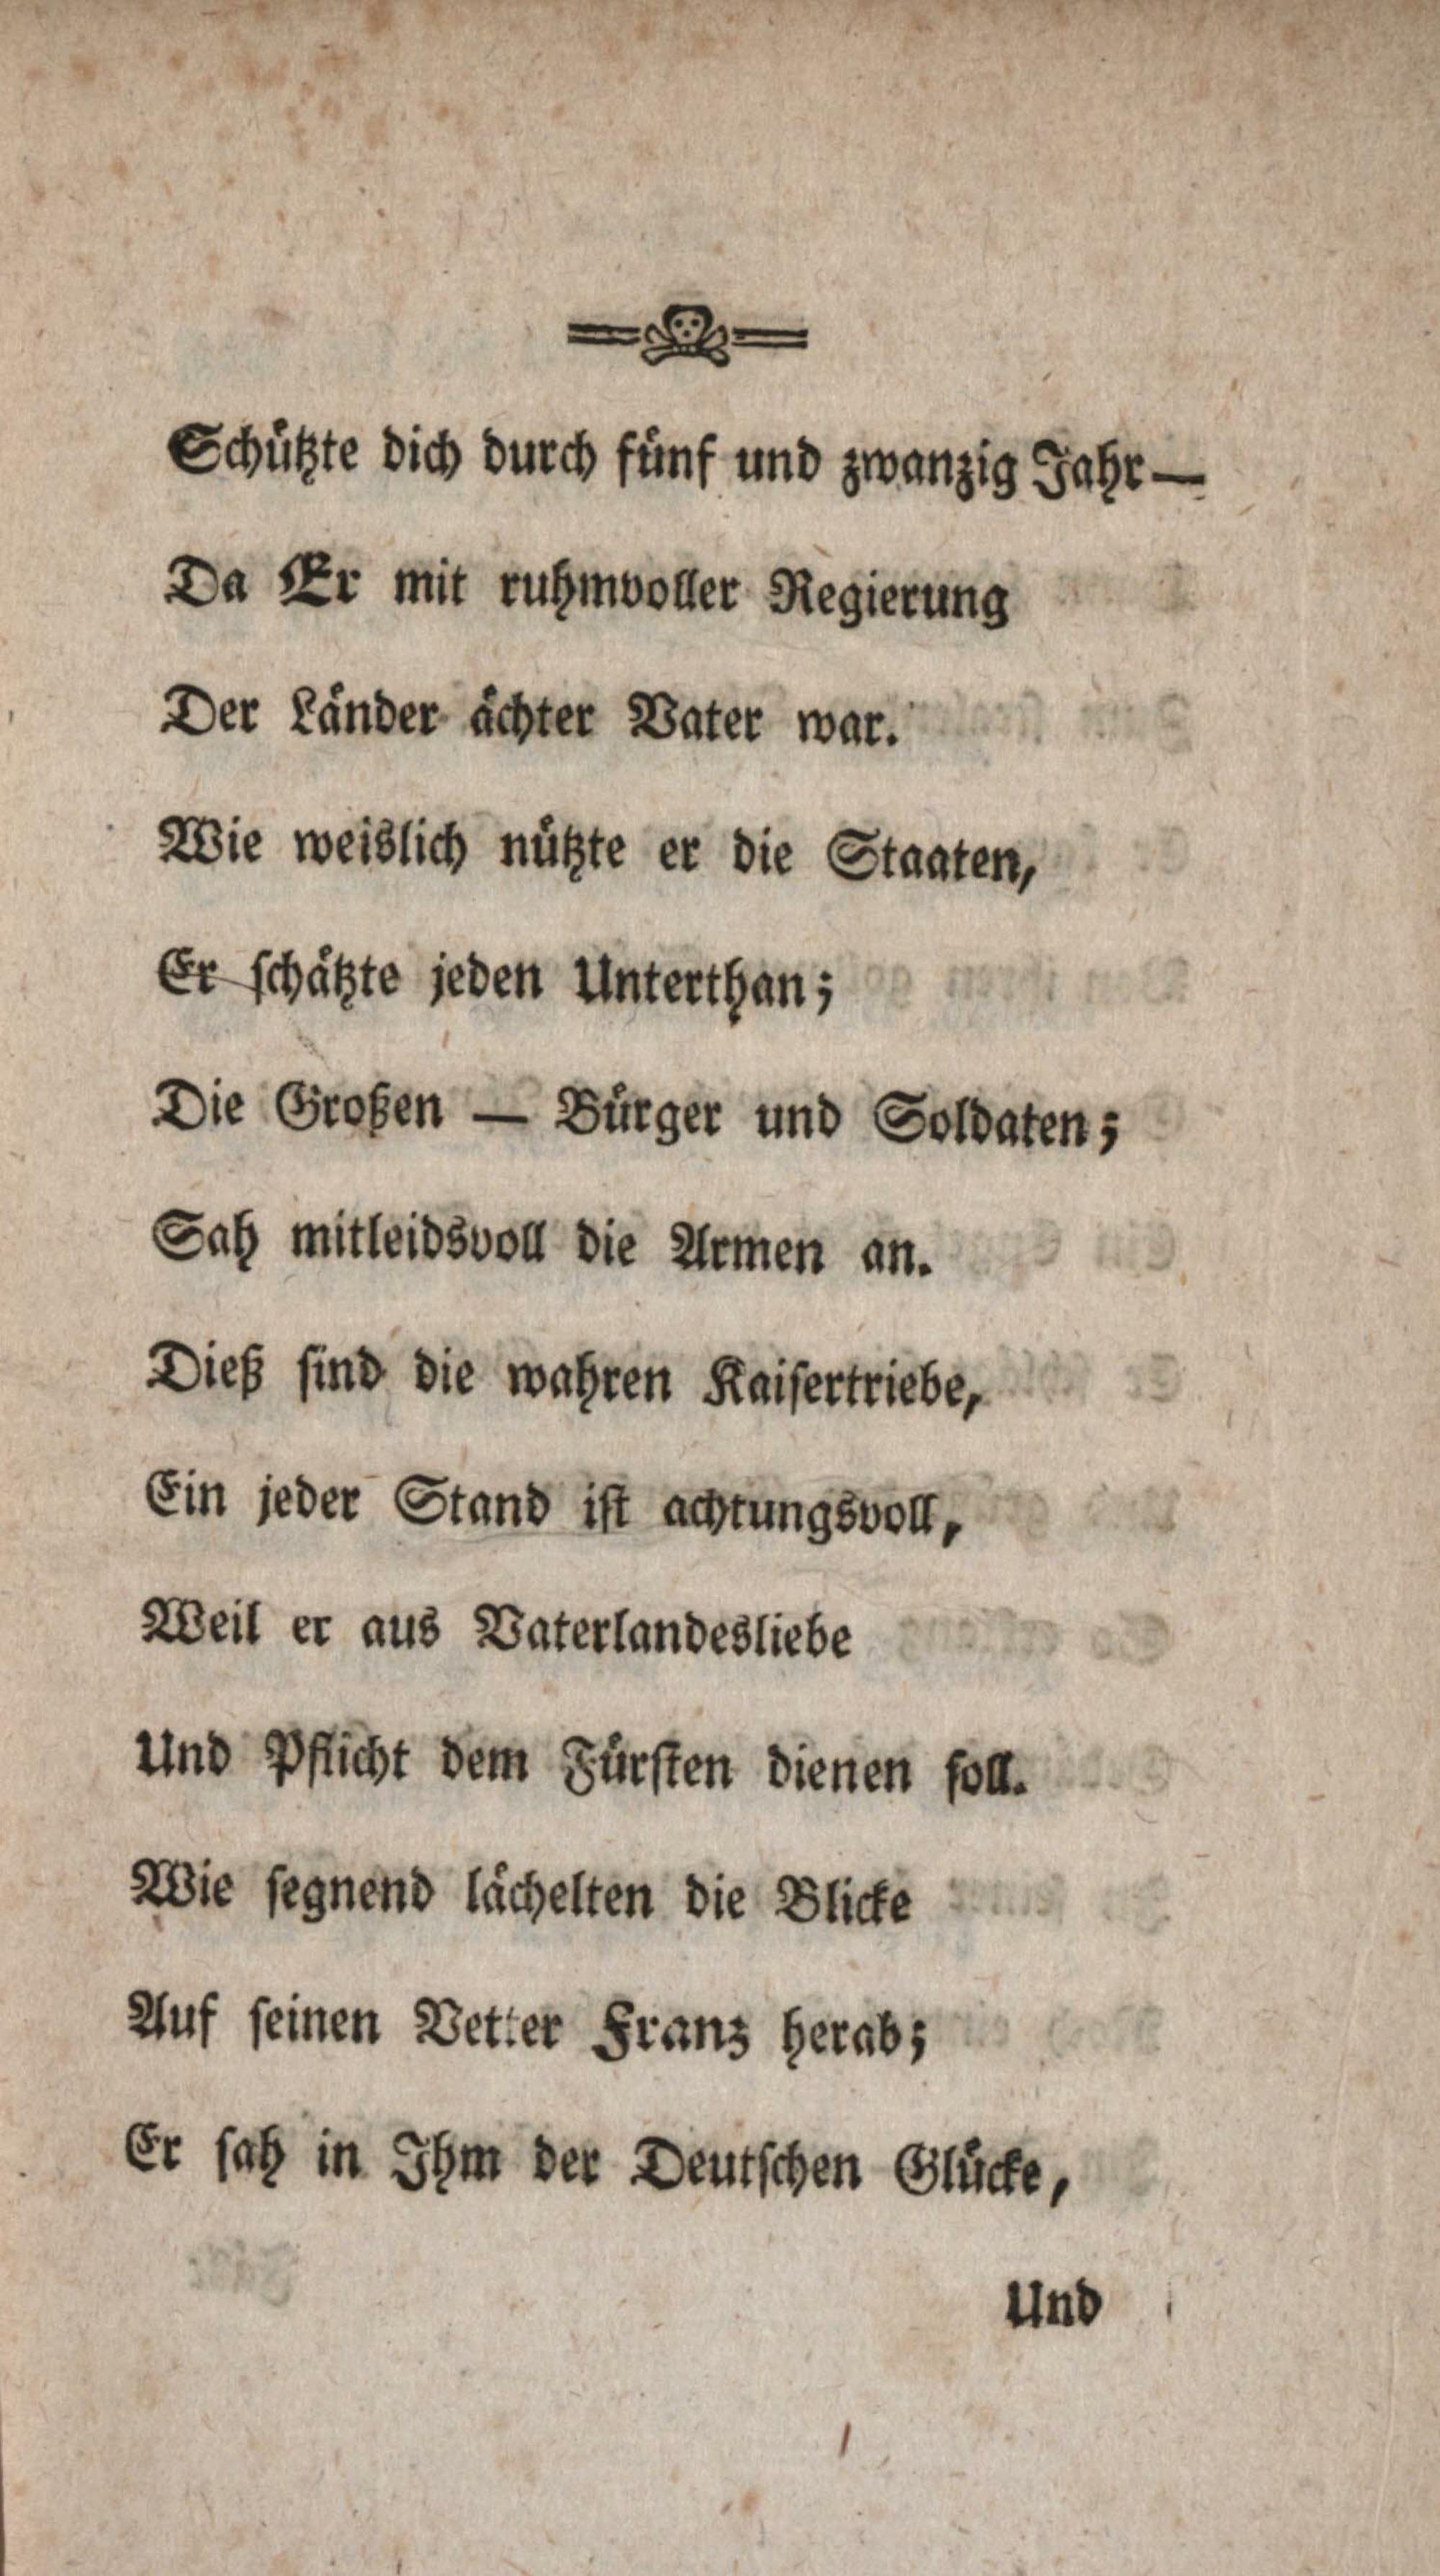 Schützte dich durch fünf und zwanzig Jahr—
Da Er mit ruhmvoller Regierung
Der Länder ächter Vater war.
Wie weislich nützte er die Staaten,
Er schätzte jeden Unterthan;
Die Großen — Bürger und Soldaten;
Sah mitleidsvoll die Armen an.
Dieß sind die wahren Kaisertriebe,
Ein jeder Stand ist achtungsvoll,
Weil er aus Vaterlandesliebe
Und Pflicht dem Fürsten dienen soll.
Wie segnend lächelten die Blicke
Auf seinen Vetter Franz herab;
Er sah in Ihm der Deutschen Glücke,
Und